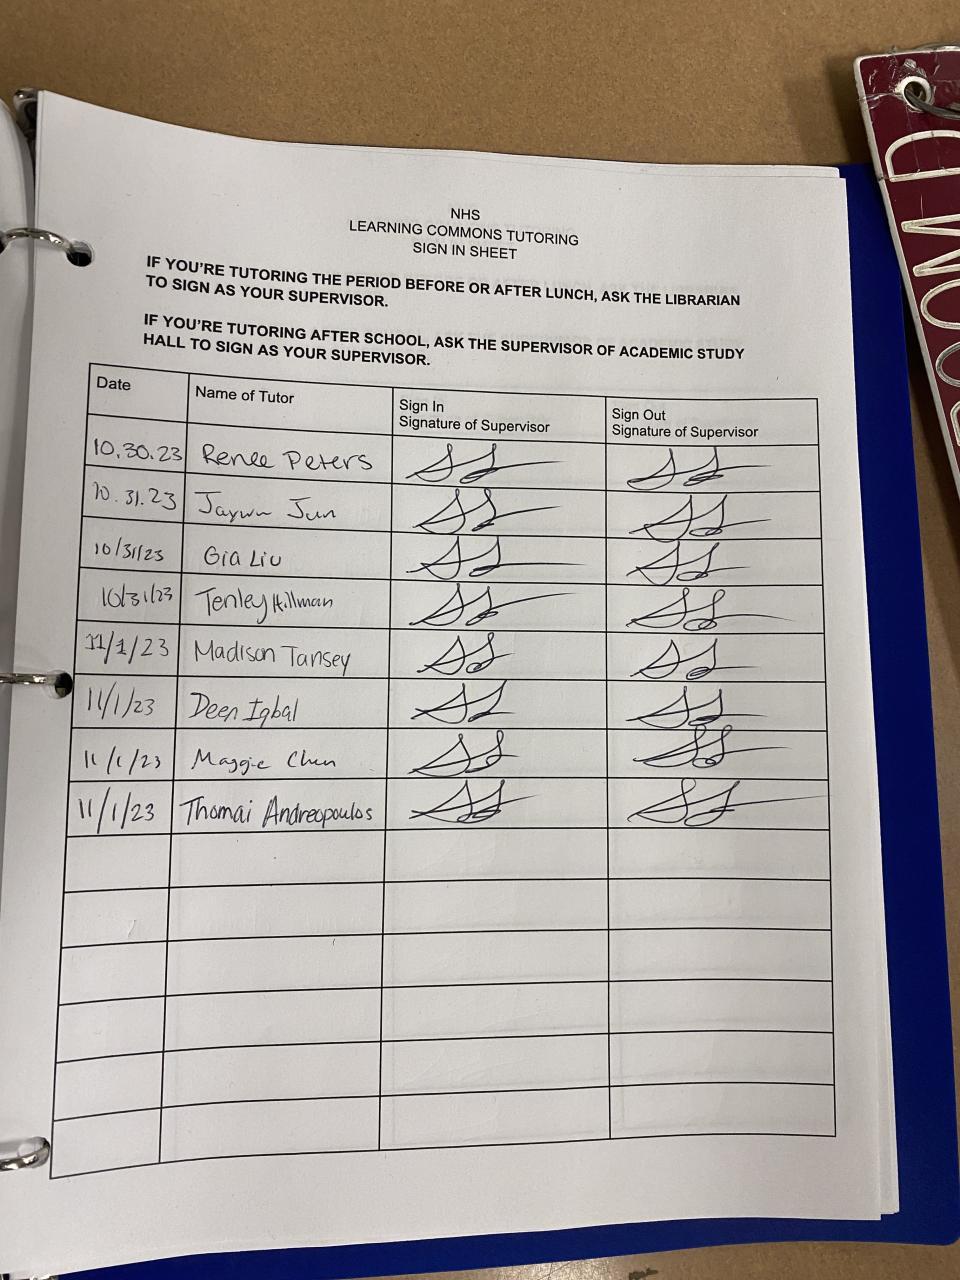 NHS
LEARNING COMMONS TUTORING
SIGN IN SHEET
IF YOU'RE TUTORING THE PERIOD BEFORE OR AFTER LUNCH, ASK THE LIBRARIAN
TO SIGN AS YOUR SUPERVISOR.
IF YOU'RE TUTORING AFTER SCHOOL, ASK THE SUPERVISOR OF ACADEMIC STUDY
HALL TO SIGN AS YOUR SUPERVISOR.
Date Name of Tutor Sign In Sign Out
Signature of Supervisor Signature of Supervisor
10.30.23 Renee Peters
10.31.23 Jun
10/31/23 Gia Liu
10/31/23 Tenley Hillman
11/1/23 Madison Tansey
11/1/23 Deen Iqbal
11/1/23 Maggie
11/1/23 Thomai Andreopoulos